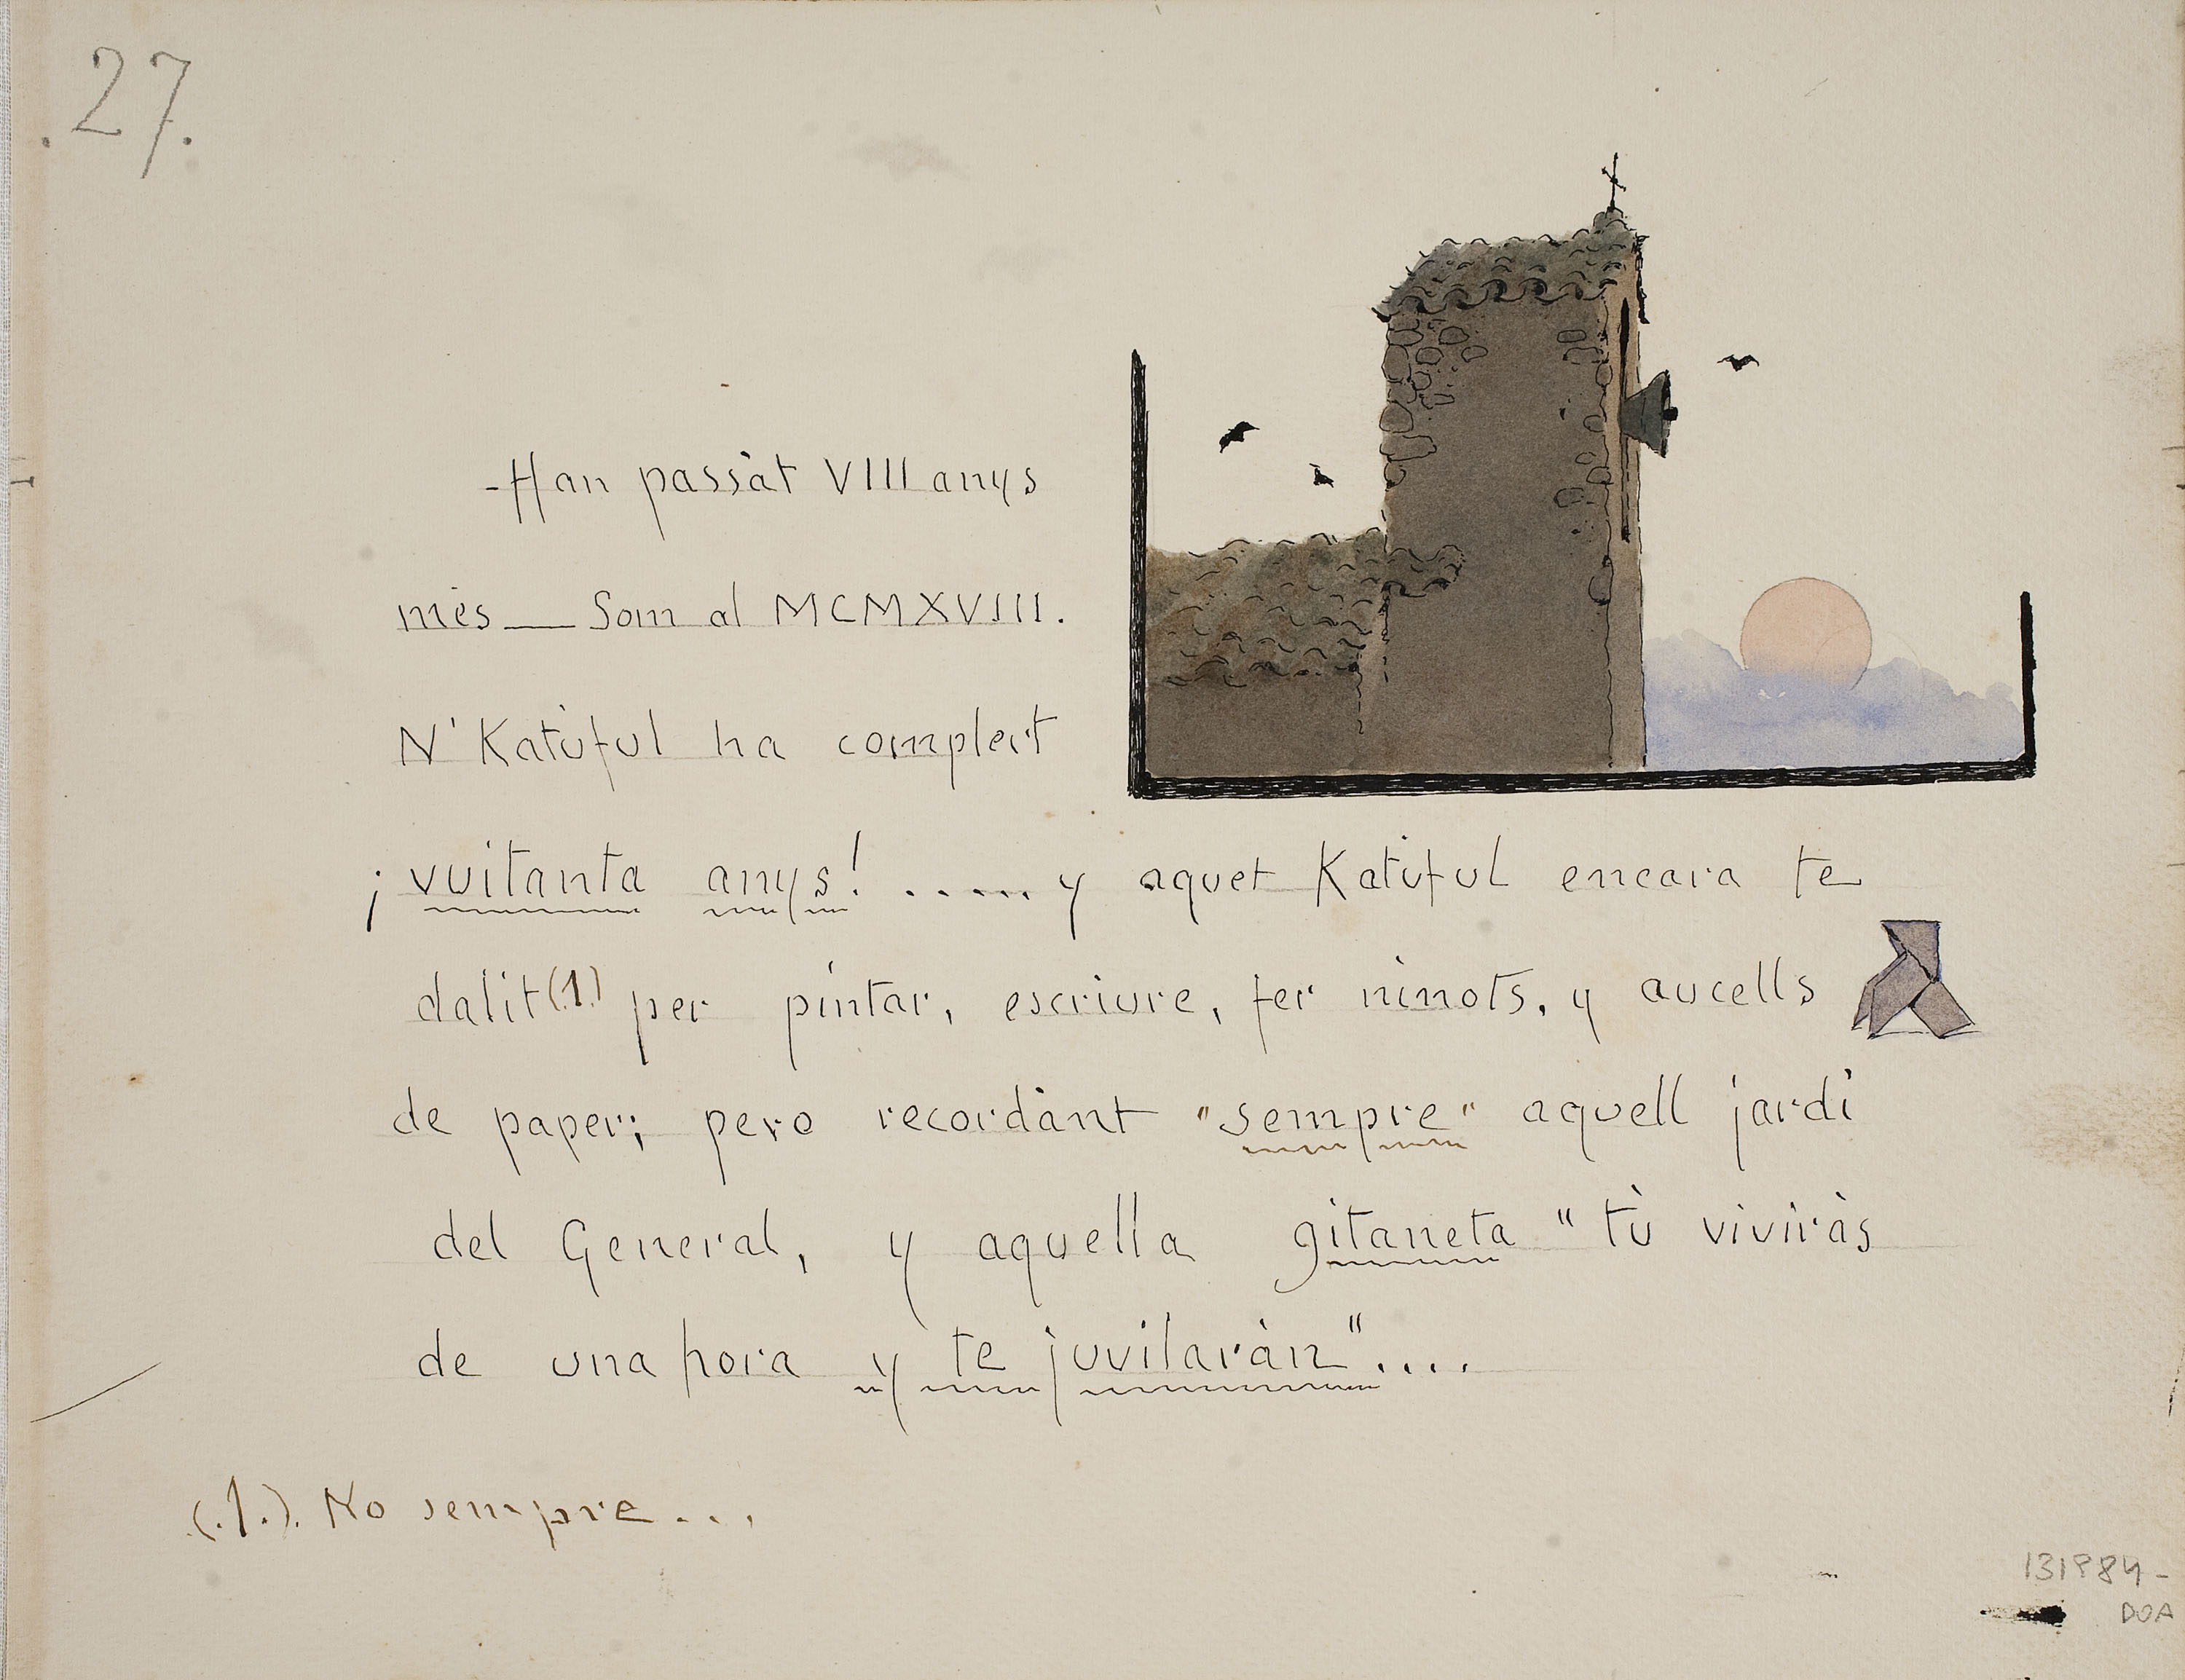 .27.
-Han passàt VIII anys
mès — Som al MCMXVIII.
N' Katúful ha complert
¡vuitanta anys! ..... y aquet Katúful encara te
dalit (1) per pintar, escriure, fer ninots, y aucells
de paper; pero recordànt "sempre" aquell jardí
del General, y aquella gitaneta "tù viviràs
de una hora y te juvilaràn"....
(.1.). No sempre...
131984-
DOA